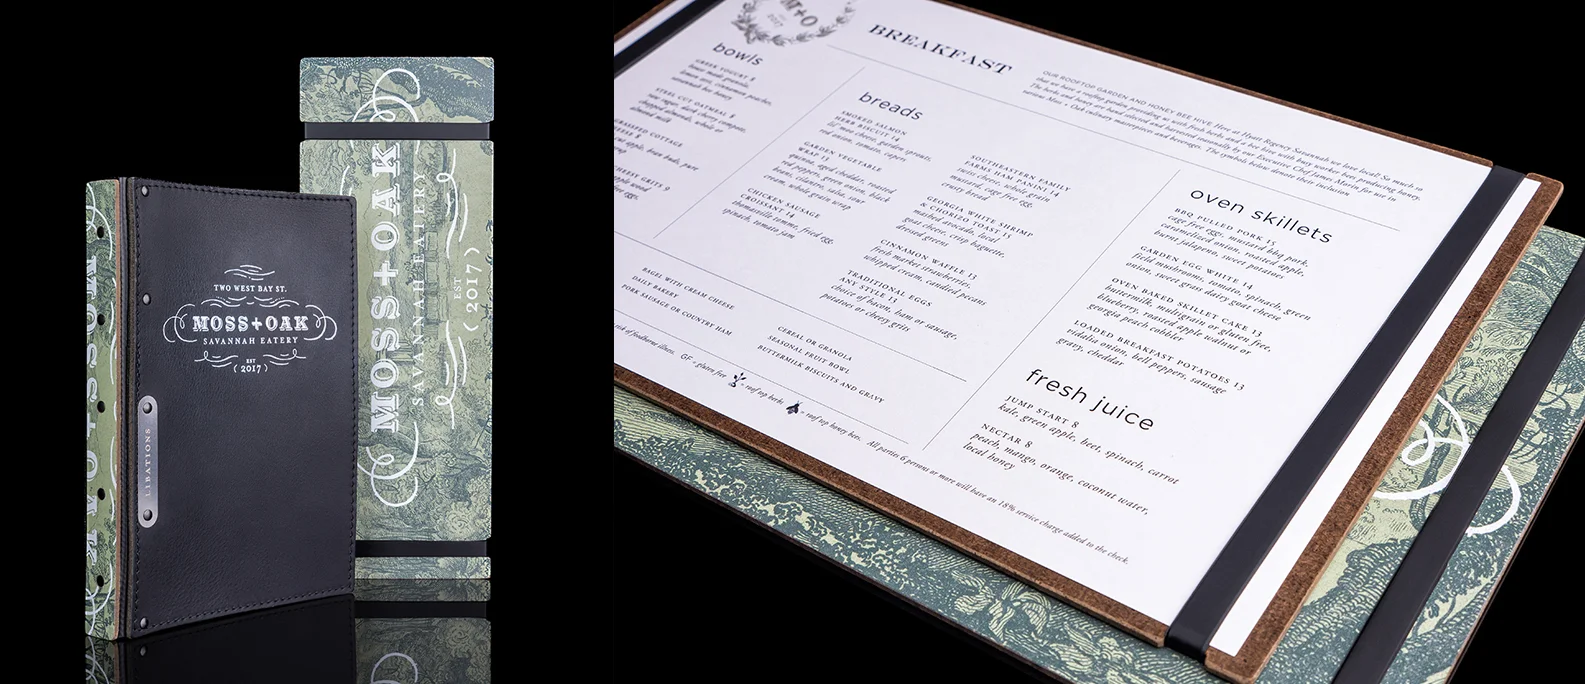 TWO WEST BAY ST.
MOSS+OAK
SAVANNAH EATERY
EST
(2017)
LIBATIONS
MOSS+OAK
SAVANNAH EATERY
EST
(2017)
2017
BREAKFAST
OUR ROOFTOP GARDEN AND HONEY BEE HIVE Here at Hyatt Regency Savannah we love local! So much so
that we have a rooftop garden providing us with fresh herbs and a bee hive with busy worker bees producing honey.
The herbs and honey are hand selected and harvested seasonally by our Executive Chef James for use in
various Moss + Oak culinary masterpieces and beverages. The symbols below denote their inclusion
bowls
GREEK YOGURT 8
house made granola,
lemon zest, cinnamon peaches,
savannah bee honey
STEEL CUT OATMEAL 8
raw sugar, dark cherry compote,
chopped almonds, whole or
almond milk
COTTAGE
CHEESY GRITS 9
breads
SMOKED SALMON
HERB BISCUIT 14
dill mac cheese, garden sprouts,
red onion, tomato, capers
GARDEN VEGETABLE
WRAP 13
quinoa, aged cheddar, roasted
red peppers, green onion, black
beans, cilantro, salsa, sour
cream, whole grain wrap
CHICKEN SAUSAGE
CROISSANT 14
thomasville tomme, fried egg,
spinach, tomato jam
SOUTHEASTERN FAMILY
FARMS HAM PANINI 14
swiss cheese, whole grain
mustard, cage free egg,
crusty bread
GEORGIA WHITE SHRIMP
& CHORIZO TOAST 15
mashed avocado, local
goat cheese, crisp baguette,
dressed greens
CINNAMON WAFFLE 13
fresh market strawberries,
whipped cream, candied pecans
TRADITIONAL EGGS
ANY STYLE 13
choice of bacon, ham or sausage,
potatoes or cheesy grits
oven skillets
BBQ PULLED PORK 15
cage free eggs, mustard bbq pork,
caramelized onion, roasted apple,
burnt jalapeno, sweet potatoes
GARDEN EGG WHITE 14
field mushrooms, tomato, spinach, green
onion, sweet grass dairy goat cheese
OVEN BAKED SKILLET CAKE 13
buttermilk, multigrain or gluten free,
blueberry, roasted apple walnut or
georgia peach cobbler
LOADED BREAKFAST POTATOES 13
vidalia onion, bell peppers, sausage
gravy, cheddar
fresh juice
JUMP START 8
kale, green apple, beet, spinach, carrot
NECTAR 8
peach, mango, orange, coconut water,
local honey
BAGEL WITH CREAM CHEESE
DAILY BAKERY
PORK SAUSAGE OR COUNTRY HAM
CEREAL OR GRANOLA
SEASONAL FRUIT BOWL
BUTTERMILK BISCUITS AND GRAVY
risk of foodborne illness. GF = gluten free = roof top herbs = roof top honey bees. All parties 6 persons or more will have an 18% service charge added to the check.